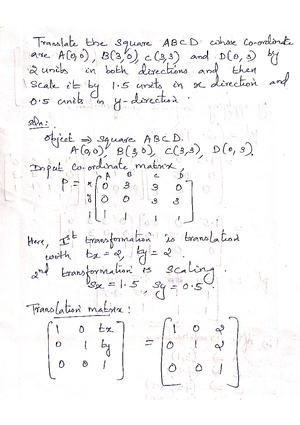 Translate the square ABCD whose co-ordinate
are A(0,0), B(3,0) C(3,3) and D(0,3) by
2 units in both directions and then
scale it by 1.5 units in x direction and
0.5 units in y-direction.
Soln:
Object ⇒ Square ABCD.
A(0,0), B(3,0), C(3,3), D(0,3).
Input co-ordinate matrix
A B C D
P = x 0 3 3 0
y 0 0 3 3
1 1 1 1
Here, Ist transformation is translation
with tx = 2, ty = 2.
2nd transformation is scaling.
Sx = 1.5, Sy = 0.5.
Translation matrix:
1 0 tx 1 0 2
0 1 ty = 0 1 2
0 0 1 0 0 1